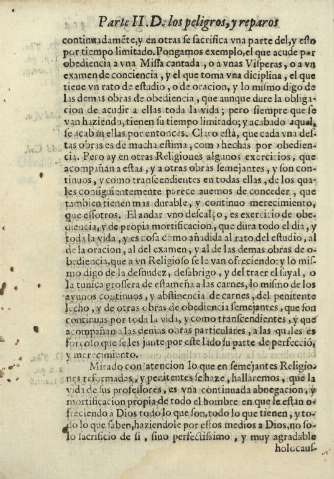 Parte II. D. los peligros, y reparos
continuadamẽte, y en otras se sacrifica vna parte del, y esto
por tiempo limitado. Pongamos exemplo, el que acude por
obediencia a vna Missa cantada, o a vnas Visperas, o a vn
examen de conciencia, y el que toma vna diciplina, el que
tiene vn rato de estudio, o de oracion, y lo mismo digo de
las demas obras de obediencia, que aunque dure la obliga-
cion de acudir a ellas toda la vida; pero siempre que se
van haziendo, tienen su tiempo limitado; y acabado aquel,
se acabã ellas por entonces. Claro està, que cada vna des-
tas obras es de mucha estima, como hechas por obedien-
cia. Pero ay en otras Religiones algunos exercicios, que
acompañan a estas, y a otras obras semejantes, y son con-
tinuos, y como transcendientes en todas ellas, de los qua-
les consiguientemente parece auemos de conceder, que
tambien tienen mas durable, y continuo merecimiento,
que essotros. El andar vno descalço, es exercicio de obe-
diencia, y de propia mortificacion, que dura todo el dia, y
toda la vida, y es cosa como añadida al rato del estudio, al
de la oracion, al del examen, y al de las demas obras de o-
bediencia, que a vn Religioso se le van ofreciendo: y lo mis-
mo digo de la desnudez, desabrigo, y del traer el sayal, o
la tunica grossera de estameña a las carnes, lo mismo de los
ayunos continuos, y abstinencia de carnes, del penitente
lecho, y de otras obras de obediencia semejantes, que son
continuas por toda la vida, y como transcendientes, y que
acompañan a las demas obras particulares, a las quales es
forçoso que se les junte por este lado su parte de perfecció,
y merecimiento.
Mirado con atencion lo que en semejantes Religio-
nes reformadas, y penitentes se haze, hallaremos, que la
vida de sus professores, es vna continuada abnegacion, y
mortificacion propia de todo el hombre en que le estàn o-
freciendo a Dios todo lo que son, todo lo que tienen, y to-
do lo que saben, haziendole por estos medios a Dios, no so-
lo sacrificio de si, sino perfectissimo, y muy agradable
holocaus-